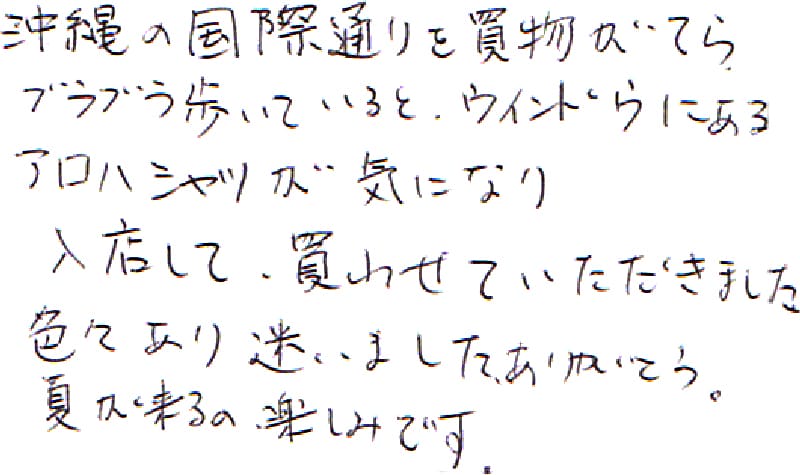 沖縄の国際通りを買物がてら
ブラブラ歩いていると、ウインドウにある
アロハシャツが気になり
入店して、買わせていただきました
色々あり迷いました、ありがとう。
夏が来るの楽しみです。